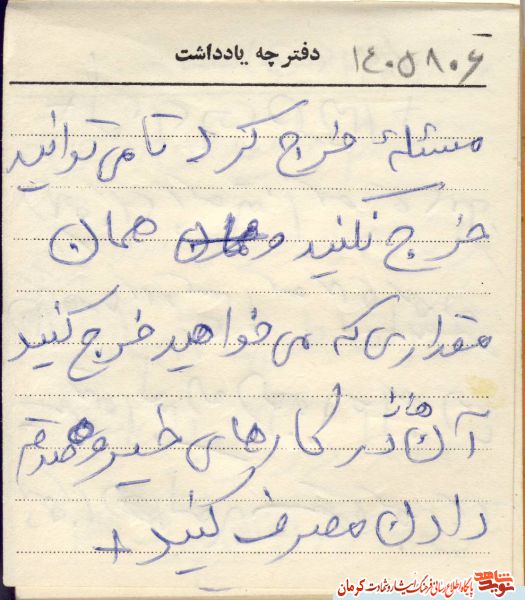 دفترچه یادداشت
۱۴۰۵۸۰۰۶
مسئلهٔ خرج کرد تا می توانید
خرج نکنید و همان
مقداری که می خواهید خرج کنید
آن ها را در کارهای خیر و صدقه
دادن مصرف کنید
نوید شاهد
پایگاه اطلاع رسانی فرهنگ ایثار و شهادت کرمان